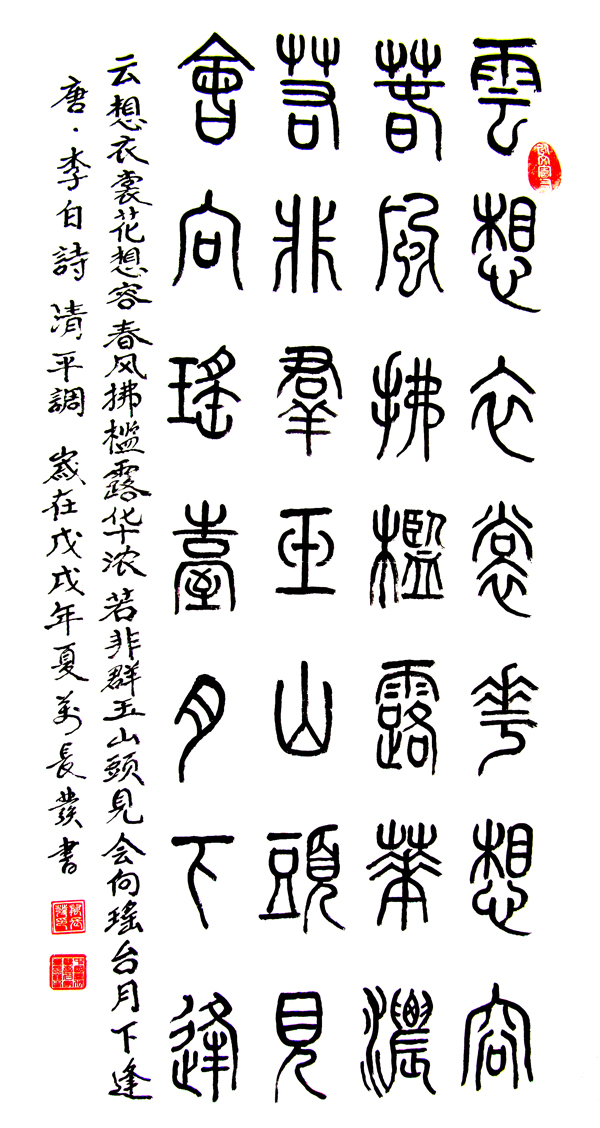 雲想衣裳花想容
春風拂檻露華濃
若非羣玉山頭見
會向瑤臺月下逢
云想衣裳花想容春风拂槛露华浓若非群玉山頭見会向瑶台月下逢
唐·李白詩清平調 嵗在戊戌年夏萬長發書